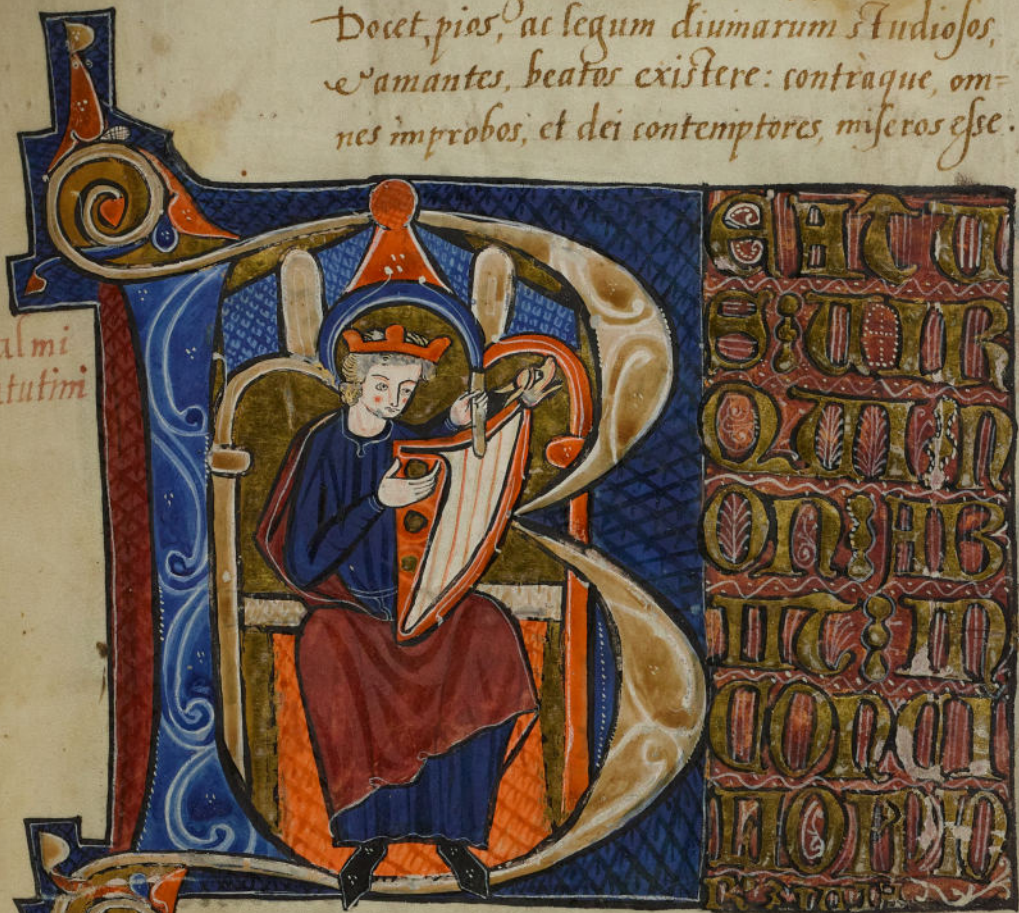 Docet, pios, ac legum diuinarum studiosos,
& amantes, beatos existere: contràque, om=
nes improbos, et dei contemptores, miseros esse.
almi
tutini
BEATU
S : UIR
QUI N
ON : AB
IIT : IN
CONCI
LIO